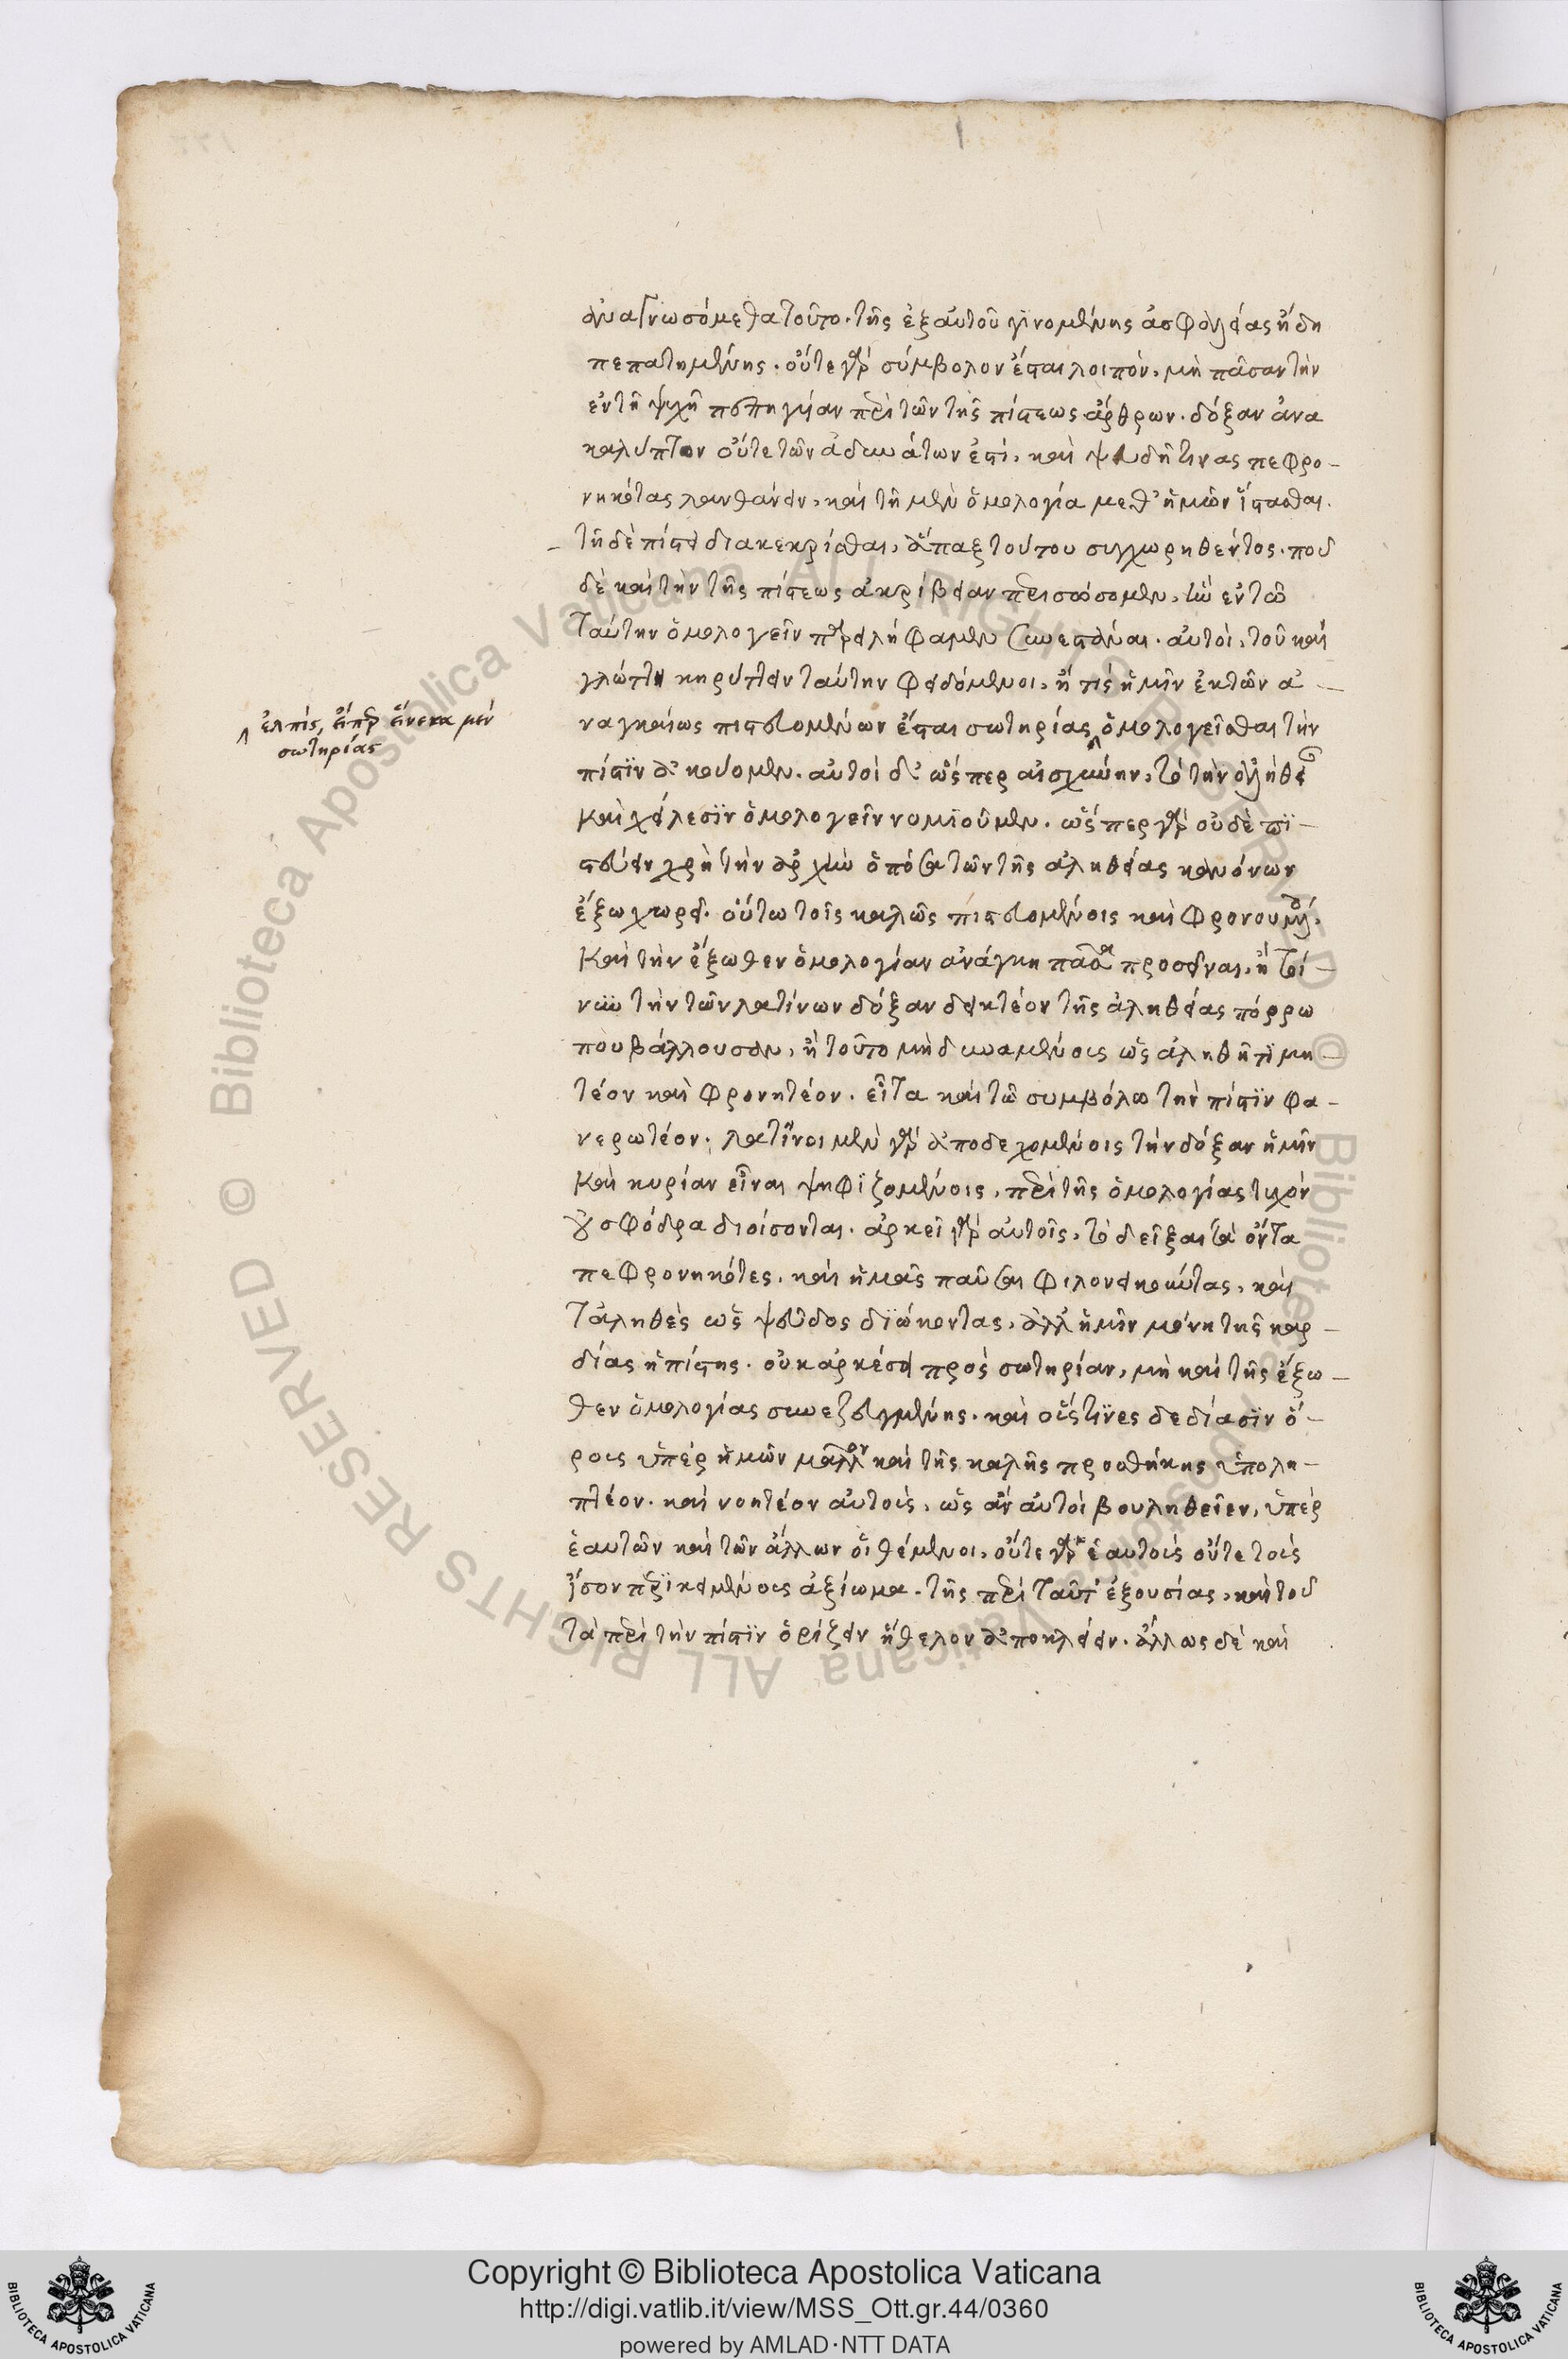 ἀναγνωσόμεθα τοῦτο. τῆς ἐξ αὐτοῦ γινομένης ἀσφαλείας ἤδη
πεπατημένης. οὔτε γὰρ σύμβολον ἔσται λοιπὸν, μὴ πᾶσαν τὴν
ἐν τῆ ψυχῆ περὶ τῶν τῆς πίστεως ἄρθρων. δόξαν ἀνα
καλύπτον οὔτε τῶν ἀδυνάτων ἐστὶ, καὶ ψευδῆ τινας πεφρο-
νηκότας λανθάνειν, καὶ τῆ μὲν ὁμολογία μεθ' ἡμῶν ἵστασθαι.
τῆ δὲ πίστει διακεκρίσθαι, ἅπαξ τούτου συγχωρηθέντος. ποῦ
δὲ καὶ τὴν τῆς πίστεως ἀκρίβειαν περισώσομεν, ἣν ἐν τῶ
ταύτην ὁμολογεῖν παρειλήφαμεν συνεστάναι. αὐτοὶ, τοῦ καὶ
γλώττη κηρύττειν ταύτην φειδόμενοι, ἤ τις ἡμῖν ἐκ τῶν ἀ-
ναγκαίως πιστευομένων ἔσται σωτηρίας ὁμολογεῖσθαι τὴν
ἐλπὶς, εἴπερ ἕνεκα μὲν
σωτηρίας
πίστιν ἀκούομεν. αὐτοὶ δ' ὥσπερ αἰσχύνην, τὸ τὴν ἀλήθειαν
καὶ χείλεσιν ὁμολογεῖν νομιοῦμεν. ὥσπερ γὰρ οὐδὲ πι-
στεύειν χρὴ τὴν ἀρχὴν ὁπόσα τῶν τῆς ἀληθείας κανόνων
ἔξω χωρεῖ. οὕτω τοῖς καλῶς πιστευομένοις καὶ φρονουμένοις.
καὶ τὴν ἔξωθεν ὁμολογίαν ἀνάγκη πᾶσα προσεῖναι, ἢ τοί-
νυν τὴν τῶν λατίνων δόξαν δεικτέον τῆς ἀληθείας πόρρω
που βάλλουσαν, ἢ τοῦτο μὴ δυναμένοις ὡς ἀληθῆ τιμη-
τέον καὶ φρονητέον. εἶτα καὶ τῶ συμβόλω τὴν πίστιν φα-
νερωτέον. λατῖνοι μὲν γὰρ ἀποδεχομένοις τὴν δόξαν ἡμῖν
καὶ κυρίαν εἶναι ψηφιζομένοις, περὶ τῆς ὁμολογίας τυχὸν
οὐ σφόδρα διοίσονται. ἀρκεῖ γὰρ αὐτοῖς, τὸ δεῖξαι τὰ ὄντα
πεφρονηκότες, καὶ ἡμᾶς παῦσαι φιλονεικοῦντας, καὶ
τἀληθὲς ὡς ψεῦδος διώκοντας, ἀλλ' ἡμῖν μόνη τῆς καρ-
δίας ἡ πίστις. οὐκ ἀρκέσει πρὸς σωτηρίαν, μὴ καὶ τῆς ἔξω-
θεν ὁμολογίας συνεζευγμένης. καὶ οἵστινες δεδίασιν ὅ-
ροις ὑπὲρ ἡμῶν μᾶλλον καὶ τῆς καλῆς προσθήκης ὑπολη-
πτέον. καὶ νοητέον αὐτοὶς, ὡς ἂν αὐτοὶ βουληθεῖεν, ὑπὲρ
ἑαυτῶν καὶ τῶν ἄλλων οἱ θέμενοι, οὔτε γὰρ ἑαυτοὶς οὔτε τοὶς
ἴσον περικειμένοις ἀξίωμα. τῆς περὶ ταῦτ' ἐξουσίας, καὶ τοῦ
τὰ περὶ τὴν πίστιν ὁρίζειν ἤθελον ἀποκλείειν. ἄλλως δὲ καὶ
Copyright © Biblioteca Apostolica Vaticana
http://digi.vatlib.it/view/MSS_Ott.gr.44/0360
powered by AMLAD·NTT DATA
BIBLIOTECA APOSTOLICA VATICANA
BIBLIOTECA APOSTOLICA VATICANA
© Biblioteca Apostolica Vaticana ALL RIGHTS RESERVED © Biblioteca Apostolica Vaticana ALL RIGHTS RESERVED